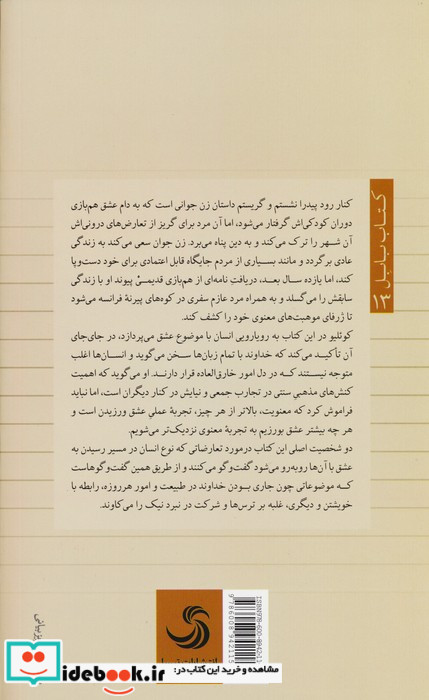 کتاب بابل ۱۴
کنار رود پیدرا نشستم و گریستم داستان زن جوانی است که به دام عشق هم‌بازی
دوران کودکی‌اش گرفتار می‌شود، اما آن مرد برای گریز از تعارض‌های درونی‌اش
آن شهر را ترک می‌کند و به دین پناه می‌برد. زن جوان سعی می‌کند به زندگی
عادی برگردد و مانند بسیاری از مردم جایگاه قابل اعتمادی برای خود دست‌وپا
کند، اما یازده سال بعد، دریافت نامه‌ای از هم‌بازی قدیمی‌ پیوند او با زندگی
سابقش را می‌گسلد و به همراه مرد عازم سفری در کوه‌های پیرنهٔ فرانسه می‌شود
تا ژرفای موهبت‌های معنوی خود را کشف کند.
کوئلیو در این کتاب به رویارویی انسان با موضوع عشق می‌پردازد، در جای‌جای
آن تأکید می‌کند که خداوند با تمام زبان‌ها سخن می‌گوید و انسان‌ها اغلب
متوجه نیستند کـه در دل امور خارق‌العاده قرار دارنـد. او می‌گوید که اهمیت
کنش‌های مذهبیِ سنتی در تجارب جمعی و نیایش در کنار دیگران است، اما نباید
فراموش کرد که معنویت، بالاتر از هر چیز، تجربهٔ عملیِ عشق ورزیدن است و
هر چه بیشتر عشق بورزیم به تجربهٔ معنوی نزدیک‌تر می‌شویم.
دو شخصیت اصلی این کتاب درمورد تعارضاتی که نوع انسان در مسیر رسیدن به
عشق با آن‌ها روبه‌رو می‌شود گفت‌وگو می‌کنند و از طریق همین گفت‌وگوهاست
کـه موضوعاتی چون جاری بـودن خداوند در طبیعت و امور هرروزه، رابطه با
خویشتن و دیگری، غلبه بر ترس‌ها و شرکت در نبرد نیک را می‌کاوند.
ISBN978-600-8942-11-5
9786008942115
مشاهده و خرید این کتاب در:
idebook.ir